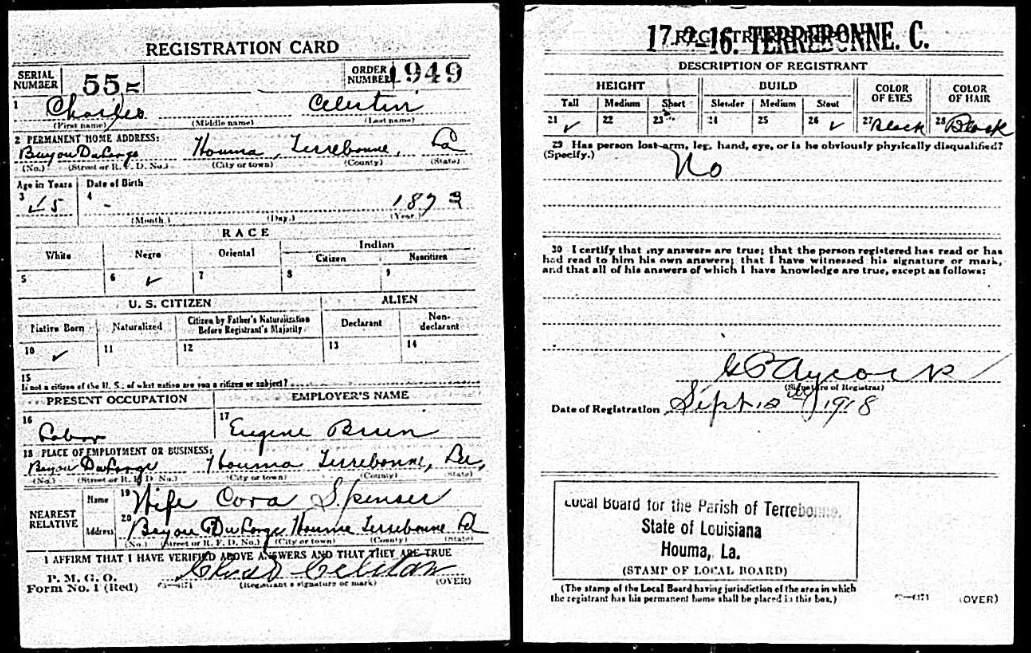 REGISTRATION CARD
SERIAL NUMBER 55 ORDER NUMBER 1949
1 Charles Celestin
(First name) (Middle name) (Last name)
2 PERMANENT HOME ADDRESS:
Bayou DuLarge Houma, Terrebonne, La
(No.) (Street or R. F. D. No.) (City or town) (County) (State)
Age in Years Date of Birth
3 45 4 - 1873
(Month.) (Day.) (Year.)
RACE
White Negro Oriental Indian
Citizen Noncitizen
5 6 ✓ 7 8 9
U. S. CITIZEN ALIEN
Native Born Naturalized Citizen by Father's Naturalization Before Registrant's Majority Declarant Non-declarant
10 ✓ 11 12 13 14
15
If not a citizen of the U. S., of what nation are you a citizen or subject?
PRESENT OCCUPATION EMPLOYER'S NAME
16 Labor 17 Eugene
18 PLACE OF EMPLOYMENT OR BUSINESS:
Bayou DuLarge Houma Terrebonne, La,
(No.) (Street or R. F. D. No.) (City or town) (County) (State)
NEAREST RELATIVE
Name 19 Wife Cora Spenser
Address 20 Bayou DuLarge Houma Terrebonne La
(No.) (Street or R. F. D. No.) (City or town) (County) (State)
I AFFIRM THAT I HAVE VERIFIED ABOVE ANSWERS AND THAT THEY ARE TRUE
P. M. G. O.
Form No. 1 (Red) (Registrant's signature or mark) (OVER)
17-2-16. TERREBONNE. C.
DESCRIPTION OF REGISTRANT
HEIGHT BUILD COLOR OF EYES COLOR OF HAIR
Tall Medium Short Slender Medium Stout
21 ✓ 22 23 24 25 26 ✓ 27 Black 28 Black
29 Has person lost arm, leg, hand, eye, or is he obviously physically disqualified?
(Specify.) No
30 I certify that my answers are true; that the person registered has read or has
had read to him his own answers; that I have witnessed his signature or mark,
and that all of his answers of which I have knowledge are true, except as follows:
Aycock
(Signature of Registrar)
Date of Registration Sept 12 1918
Local Board for the Parish of Terrebonne,
State of Louisiana
Houma, La.
(STAMP OF LOCAL BOARD)
(The stamp of the Local Board having jurisdiction of the area in which
the registrant has his permanent home shall be placed in this box.)
(OVER)